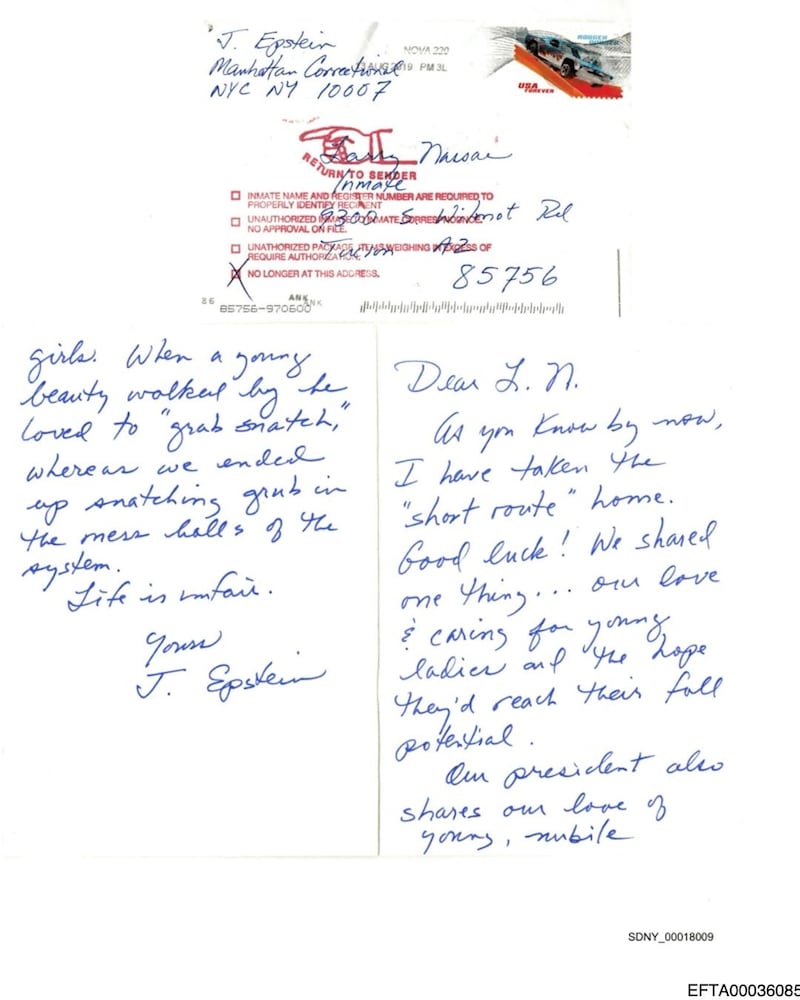 J. Epstein
Manhattan Correctional
NYC NY 10007
NOVA 220
AUG 2019 PM 3L
USA
FOREVER
Larry Nassar
Inmate
9300 S. Wilmot Rd
Tucson AZ
85756
RETURN TO SENDER
INMATE NAME AND REGISTER NUMBER ARE REQUIRED TO
PROPERLY IDENTIFY RECIPIENT
UNAUTHORIZED INMATE TO INMATE CORRESPONDENCE.
NO APPROVAL ON FILE.
UNAUTHORIZED PACKAGE. ITEMS WEIGHING IN EXCESS OF
REQUIRE AUTHORIZATION.
NO LONGER AT THIS ADDRESS.
86
ANK
ANK
85756-970600
Dear L. N.
As you know by now,
I have taken the
"short route" home.
Good luck! We shared
one thing... our love
& caring for young
ladies and the hope
they'd reach their full
potential.
Our president also
shares our love of
young, nubile
girls. When a young
beauty walked by he
loved to "grab snatch,"
whereas we ended
up snatching grub in
the mess halls of the
system.
Life is unfair.
Yours
J. Epstein
SDNY_00018009
EFTA00036085